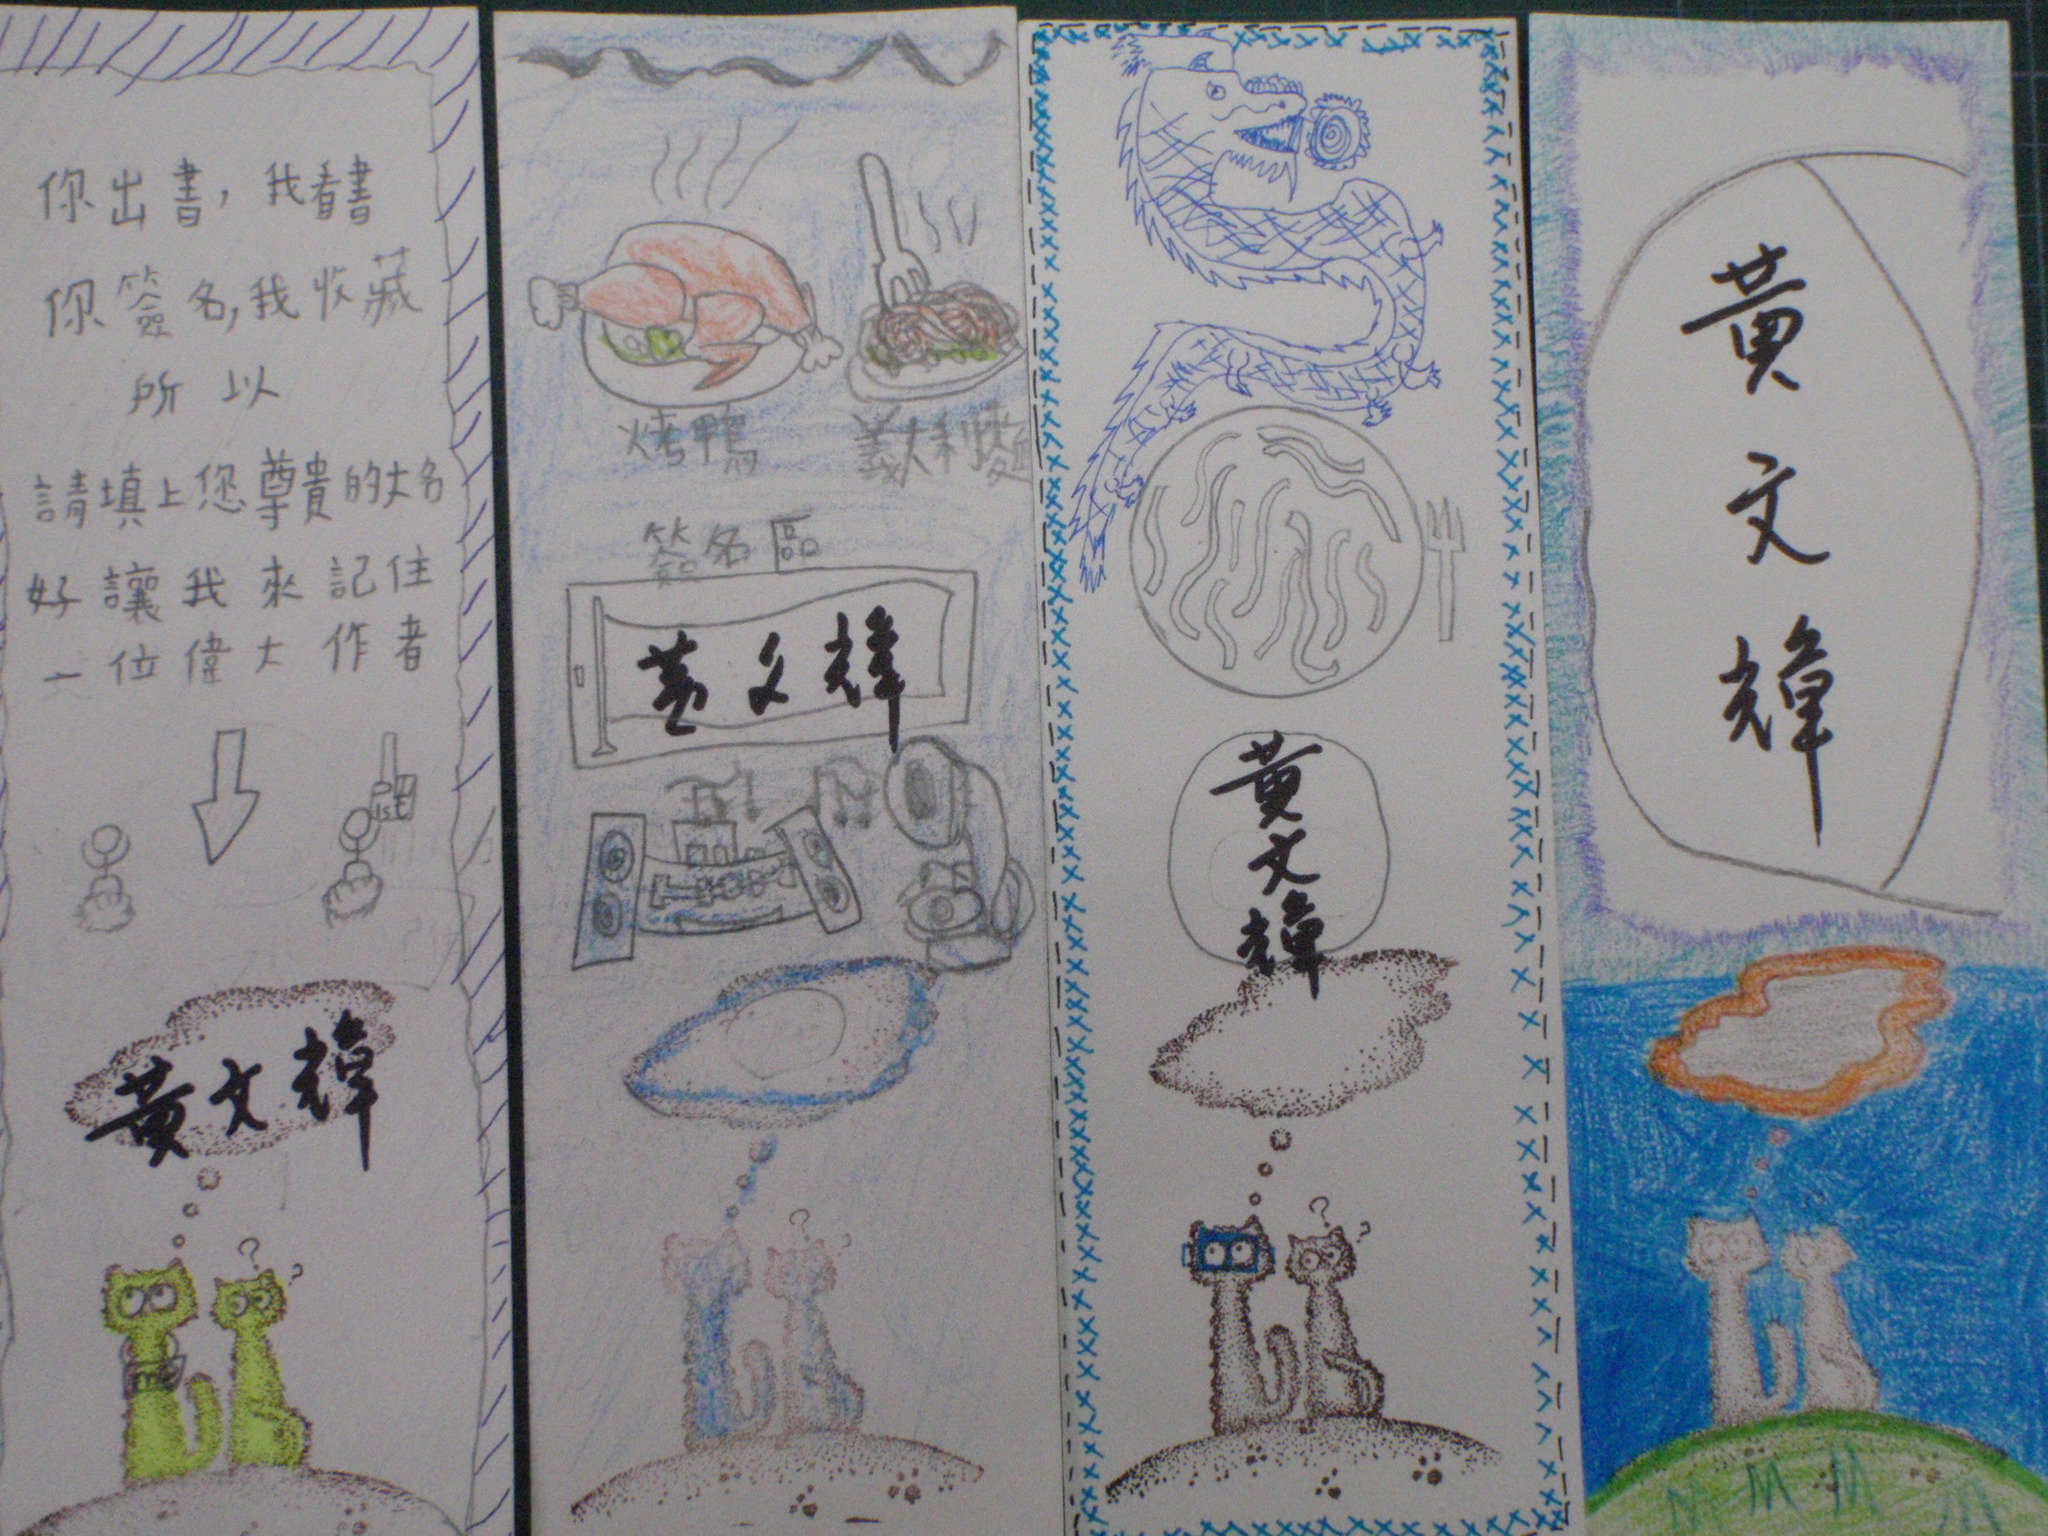 你出書，我看書
你簽名，我收藏
所以
請填上您尊貴的大名
好讓我來記住
一位偉大作者
1st
黃文輝
烤鴨
義大利麵
簽名區
黃文輝
黃文輝
黃文輝